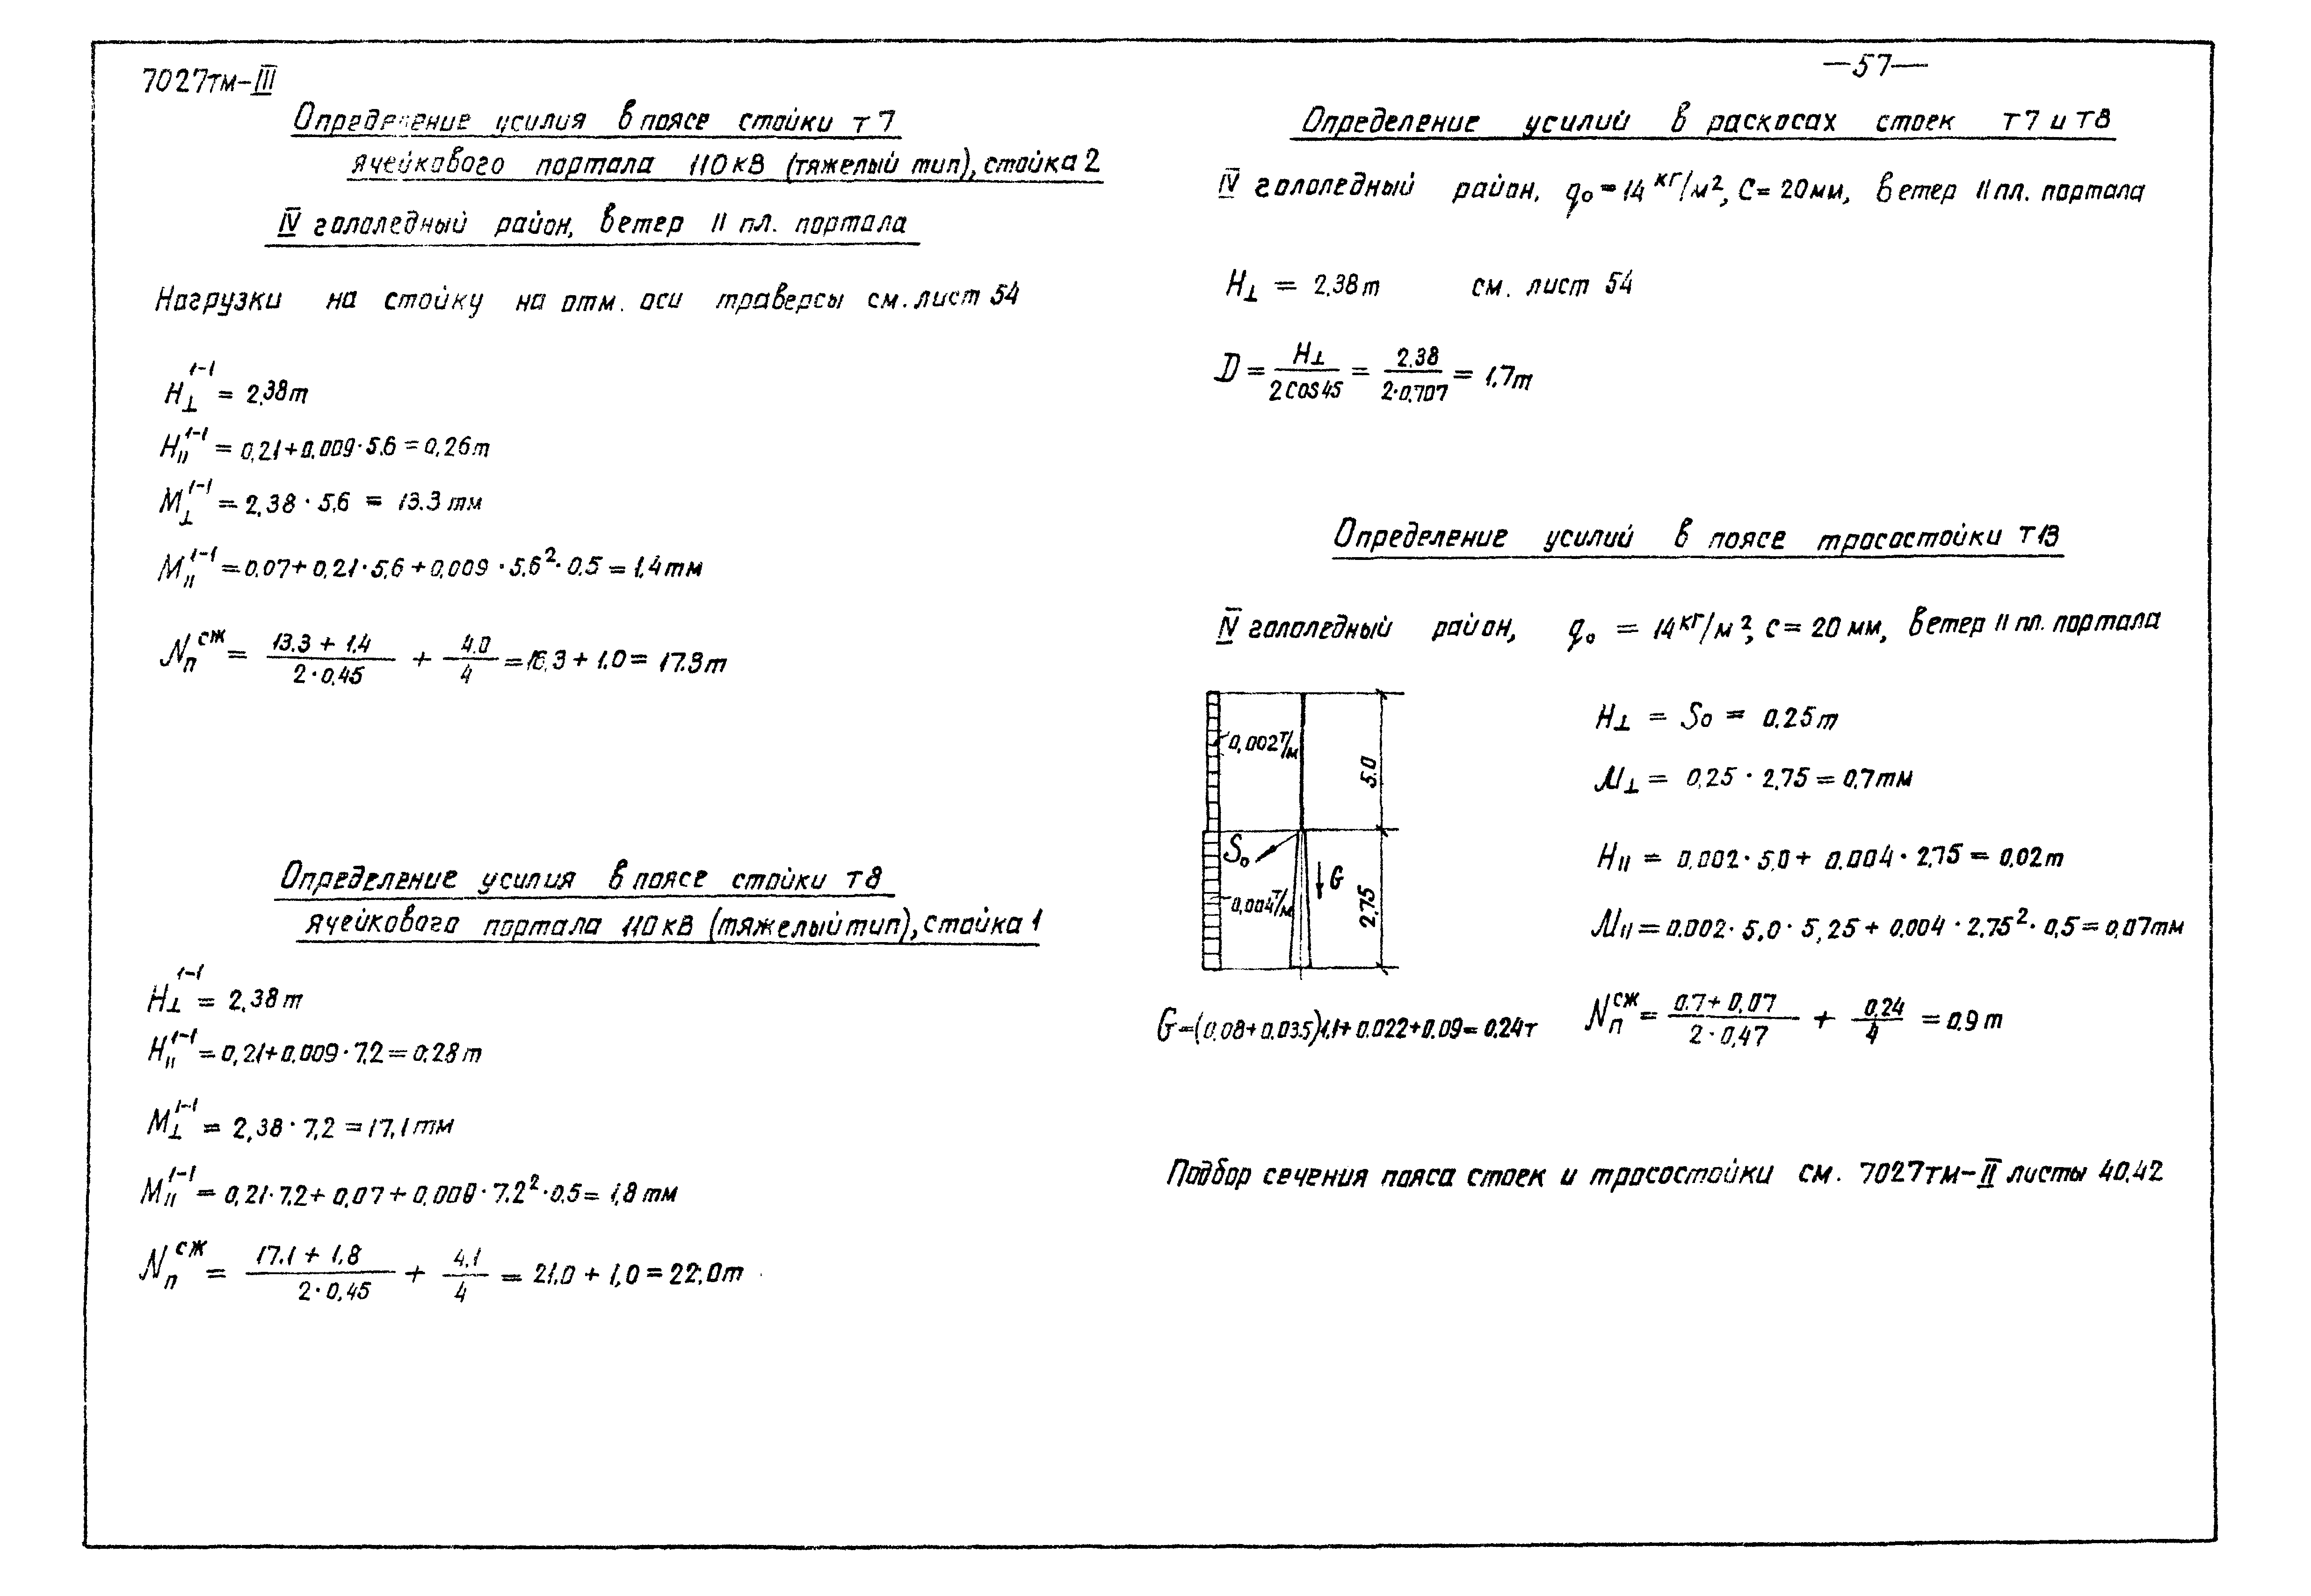 7027тм-III
Определение усилия в поясе стойки т7
ячейкового портала 110кВ (тяжелый тип), стойка 2
IV гололедный район, ветер II пл. портала
Нагрузки на стойку на отм. оси траверсы см. лист 54
H⊥¹⁻¹ = 2,38т
HII¹⁻¹ = 0,21+0,009·5,6=0,26т
M⊥¹⁻¹ = 2,38·5,6 = 13.3тм
MII¹⁻¹ = 0,07+0,21·5,6+0,009·5,6²·0,5=1,4тм
Nпсж = (13.3 + 1.4)/(2·0,45) + 4.0/4 = 16,3 + 1.0 = 17.3т
Определение усилия в поясе стойки т8
ячейкового портала 110кВ (тяжелый тип), стойка 1
H⊥¹⁻¹ = 2,38т
HII¹⁻¹ = 0,21+0,009·7,2=0,28т
M⊥¹⁻¹ = 2,38·7,2=17,1тм
MII¹⁻¹ = 0,21·7,2+0,07+0,009·7.2²·0,5=1,8тм
Nпсж = (17.1 + 1,8)/(2·0,45) + 4,1/4 = 21.0 + 1,0 = 22,0т
—57—
Определение усилий в раскосах стоек т7 и т8
IV гололедный район, q₀=14кг/м², C=20мм, ветер II пл. портала
H⊥ = 2,38т см. лист 54
D = H⊥/(2cos45) = 2.38/(2·0,707) = 1.7т
Определение усилий в поясе тросостойки т13
IV гололедный район, q₀ = 14кг/м², c=20мм, ветер II пл. портала
0,002т/м
5.0
S₀
G
0,004т/м
2,75
G=(0.08+0.035)1.1+0.022+0.09=0.24т
H⊥ = S₀ = 0.25т
M⊥ = 0,25·2,75=0,7тм
HII = 0.002·5,0+0.004·2,75=0,02т
MII=0.002·5,0·5,25+0.004·2,75²·0,5=0,07тм
Nпсж = (0.7+0,07)/(2·0,47) + 0,24/4 = 0,9т
Подбор сечения пояса стоек и тросостойки см. 7027тм-II листы 40,42